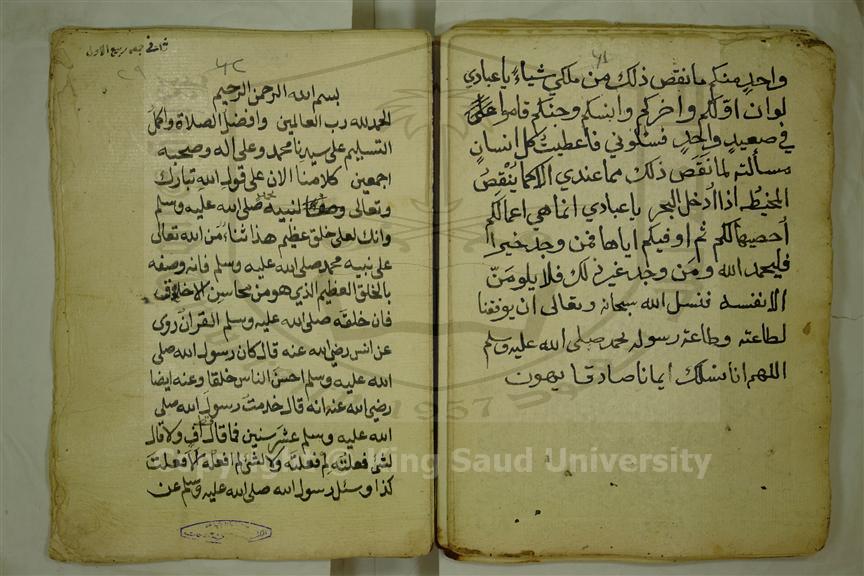 ٤١
واحد منكم ما نقص ذلك من ملكي شياء يا عبادي
لو ان اولكم واخركم وانسكم وجنكم قاموا على
في صعيد واحد فسئلوني فاعطيت كل انسان
مسألته لما نقص ذلك مما عندي الا كما ينقص
المخيط اذا ادخل البحر يا عبادي انما هي اعمالكم
احصيها لكم ثم اوفيكم اياها فمن وجد خيرا
فليحمد الله ومن وجد غير ذلك فلا يلومن
الا نفسه فنسل الله سبحانه وتعالى ان يوفقنا
لطاعته وطاعة رسوله محمد صلى الله عليه وسلم
اللهم انا نسلك ايمانا صادقا يهون
ربيع الاول
٤٢
٢٩
بسم الله الرحمن الرحيم
الحمد لله رب العالمين وافضل الصلاة واكمل
التسليم على سيدنا محمد وعلى اله وصحبه
اجمعين كلامنا الان على قوله الله تبارك
وتعالى وصفا لنبيه صلى الله عليه وسلم
وانك لعلى خلق عظيم هذا ثناء من الله تعالى
على نبيه محمد صلى الله عليه وسلم فانه وصفه
بالخلق العظيم الذي هو من محاسن الاخلاق
فان خلقه صلى الله عليه وسلم القران روى
عن انس رضي الله عنه قال كان رسول الله صلى
الله عليه وسلم احسن الناس خلقا وعنه ايضا
رضي الله عنه انه قال خدمت رسول الله صلى
الله عليه وسلم عشر سنين فما قال اف ولا قال
لشئ فعلته لم فعلته ولا لشئ لم افعله الا فعلت
كذا وسئل رسول الله صلى الله عليه وسلم عن
King Saud University
1957